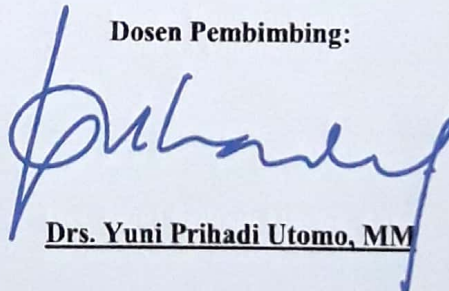 Dosen Pembimbing:
Drs. Yuni Prihadi Utomo, MM